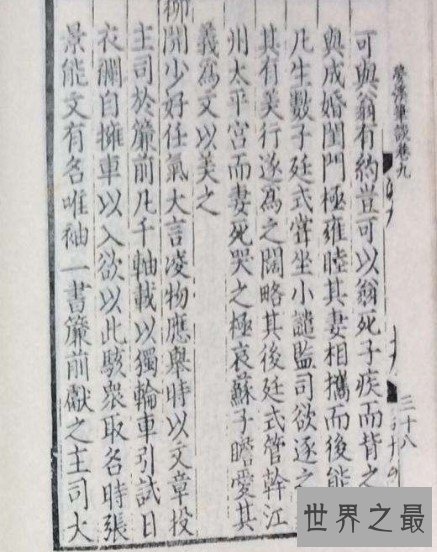 夢溪筆談卷九
三十八
可與翁有約豈可以翁死子疾而背之
與成婚閨門極雍睦其妻相攜而後能
凡生數子廷式嘗坐小譴監司欲逐之
其有美行遂為之闊略其後廷式管幹江
州太平宮而妻死哭之極哀蘇子瞻愛其
義為文以美之
柳開少好任氣大言凌物應舉時以文章投
主司於簾前凡千軸載以獨輪車引試日
衣襴自擁車以入欲以此駭眾取名時張
景能文有名唯袖一書簾前獻之主司大
世界之最